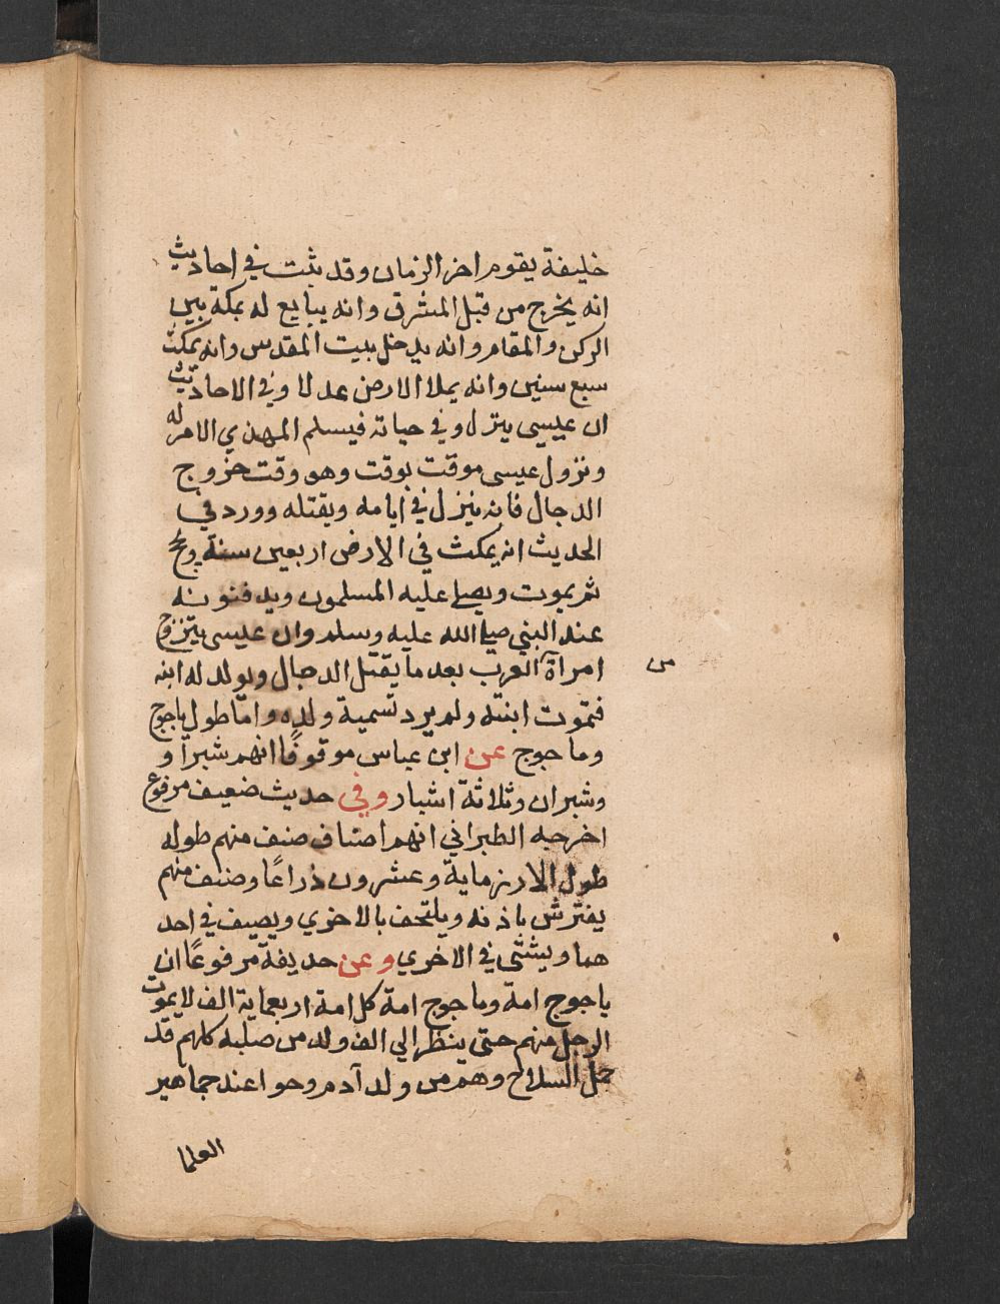 خليفة يقوم اخر الزمان وقد ثبت في احاديث
انه يخرج من قبل المشرق وانه يبايع له بمكة بين
الركن والمقام وانه يدخل بيت المقدس وانه يمكث
سبع سنين وانه يملا الارض عدلا وفي الاحاديث
ان عيسى ينزل وفي حياته فيسلم المهدي الامر له
ونزول عيسى موقت بوقت وهو وقت خروج
الدجال فانه ينزل في ايامه ويقتله وورد في
الحديث انه يمكث في الارض اربعين سنة ويحج
ثم يموت ويصلي عليه المسلمون ويدفنونه
عند النبي صلي الله عليه وسلم وان عيسى يتزوج
من
امرآة العرب بعد ما يقتل الدجال ويولد له ابنه
فتموت ابنته ولم يرد تسمية ولده واما طول ياجوج
وماجوج عن ابن عباس موقوفًا انهم شبرا و
وشبران وثلاثة اشبار وفي حديث ضعيف مرفوع
اخرجه الطبراني انهم اصناف صنف منهم طوله
طول الارز ماية وعشرون ذراعًا وصنف منهم
يفترش باذنه ويلتحف بالاخري ويصيف في احد
هما ويشتي في الاخري وعن حديفة مرفوعًا ان
ياجوج امة وماجوج امة كل امة اربعماية الف لا يموت
الرجل منهم حتى ينظر الي الف ولد من صلبه كلهم قد
حمل السلاح وهم من ولد آدم وحوا عند جماهير
العلما